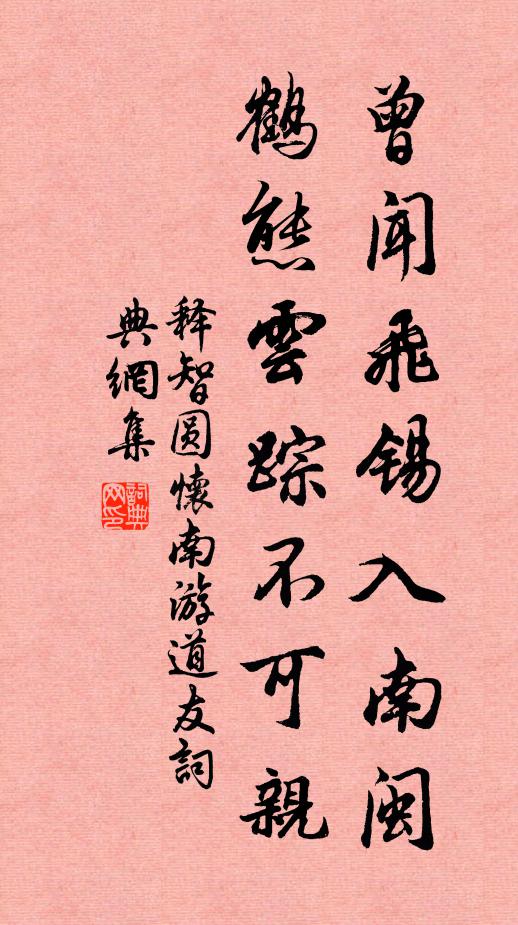 曾闻飛锡入南闽
鹤態雲踪不可親
释智圆懷南游道友詞
典網集
詞典
网印